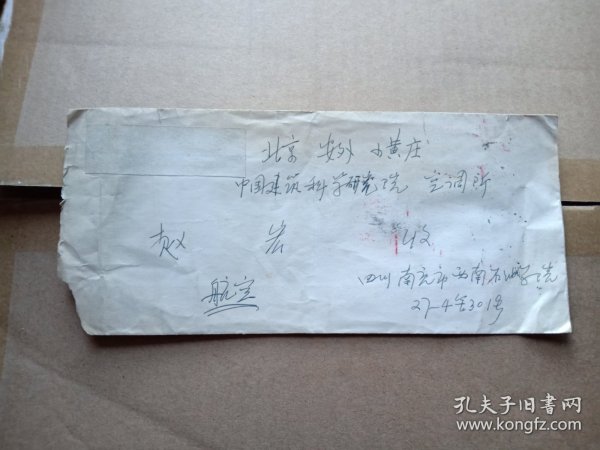 北京 安外 小黄庄
中国建筑科学研究院 空调所
赵 岩 收
航空
四川南充市西南石油学院
27-4-301号
孔夫子旧书网
www.kongfz.com